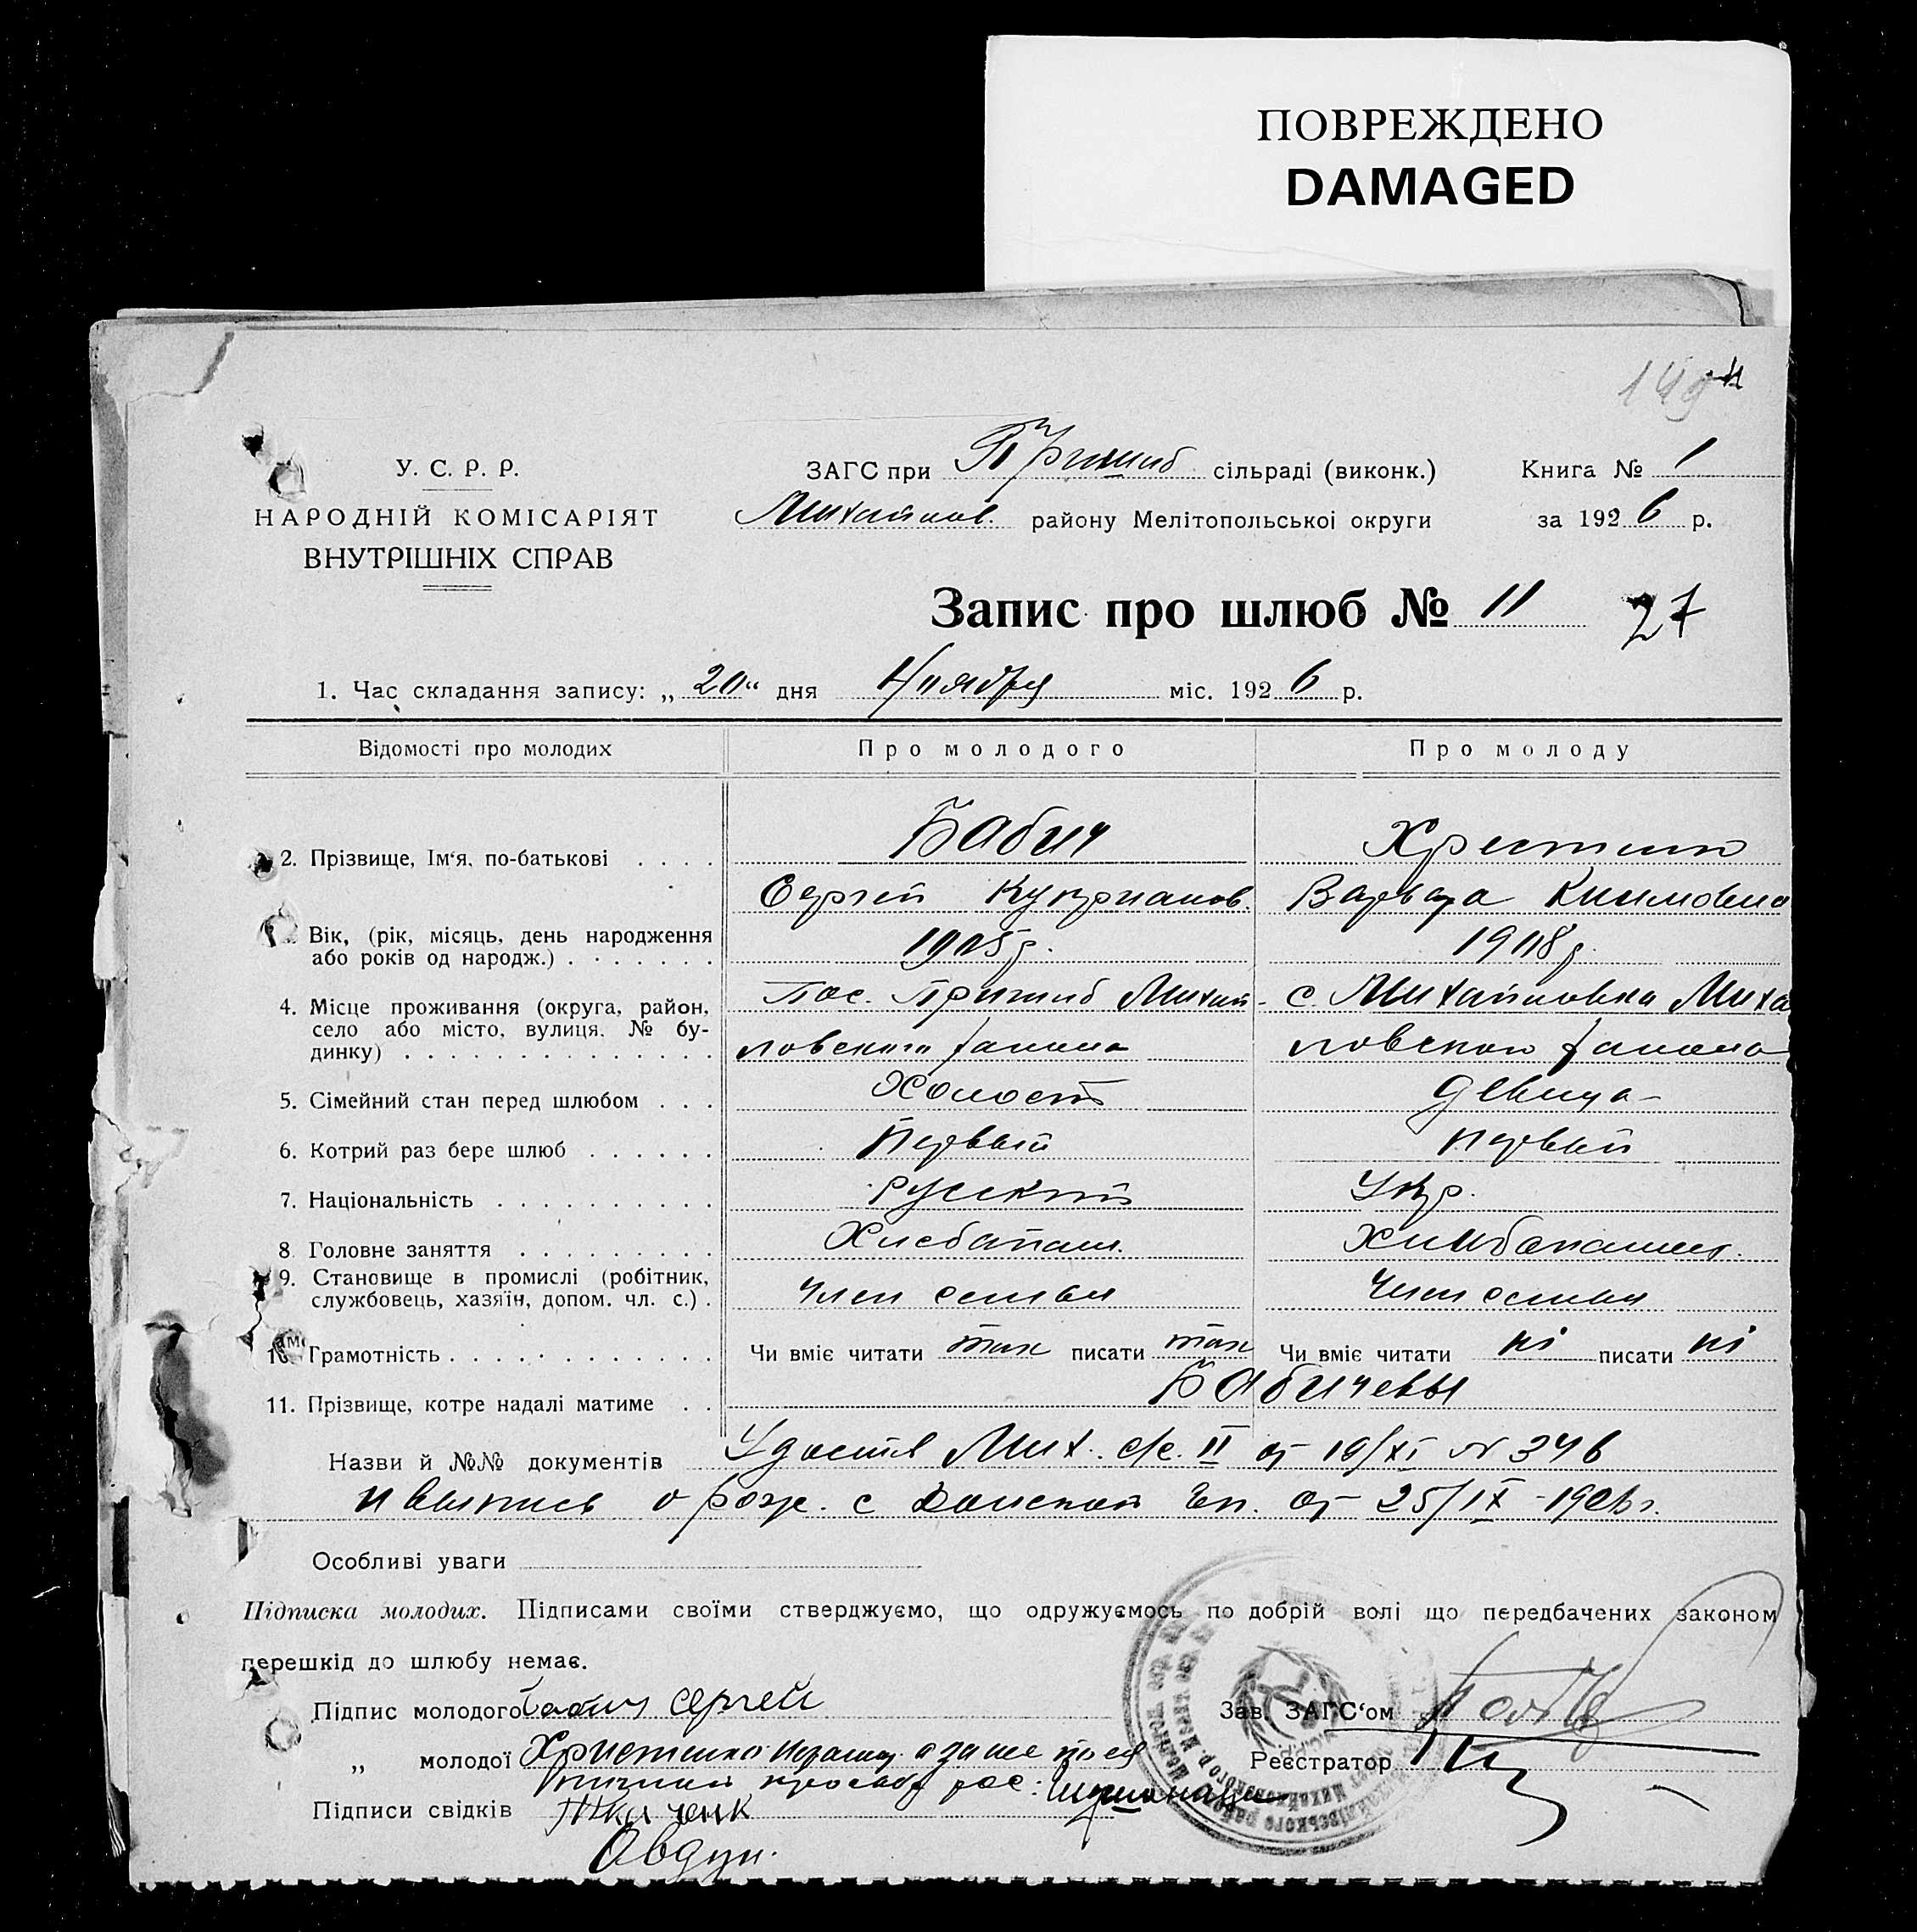 ПОВРЕЖДЕНО
DAMAGED
У. С. Р. Р.
НАРОДНІЙ КОМІСАРІЯТ
ВНУТРІШНІХ СПРАВ
ЗАГС при Пришиб сільраді (виконк.) Книга № 1
Михайлов. району Мелітопольської округи за 1926 р.
Запис про шлюб № 11 27
1. Час складання запису: „20" дня Ноября міс. 1926 р.
Відомості про молодих Про молодого Про молоду
Бабич
2. Прізвище, Ім'я, по-батькові . . . .
Сергей Куприанов. Варвара
Вік, (рік, місяць, день народження 1905 г. 1908 г.
або років од народж.) . . . . . . .
4. Місце проживання (округа, район, Пос. Пришиб Михай- с. Михайловка Миха
село або місто, вулиця. № бу-
динку) . . . . . . . . . . . . . . ловского района ловского района
5. Сімейний стан перед шлюбом . . . Холост Девица
6. Котрий раз бере шлюб . . . . . . Первый первый
7. Національність . . . . . . . . . . Русский Укр.
8. Головне заняття . . . . . . . . . Хлебопаш.
9. Становище в промислі (робітник, Член семьи Член семьи
службовець, хазяїн, допом. чл. с.) .
10. Грамотність . . . . . . . . . . . . Чи вміє читати так писати так Чи вміє читати ні писати ні
11. Прізвище, котре надалі матиме . . Бабичевы
Назви й №№ документів Удостов Мих. с/с. II от 19/XI № 346
и выпись о рож. с Донской Еп. от 25/IX
Особливі уваги
Підписка молодих. Підписами своїми стверджуємо, що одружуємось по добрій волі що передбачених законом
перешкід до шлюбу немає.
Підпис молодого Бабич Сергей Зав. ЗАГС'ом
„ молодої Христенко а за нее по ея Реєстратор
личной просьбе рос.
Підписи свідків Ткаченк